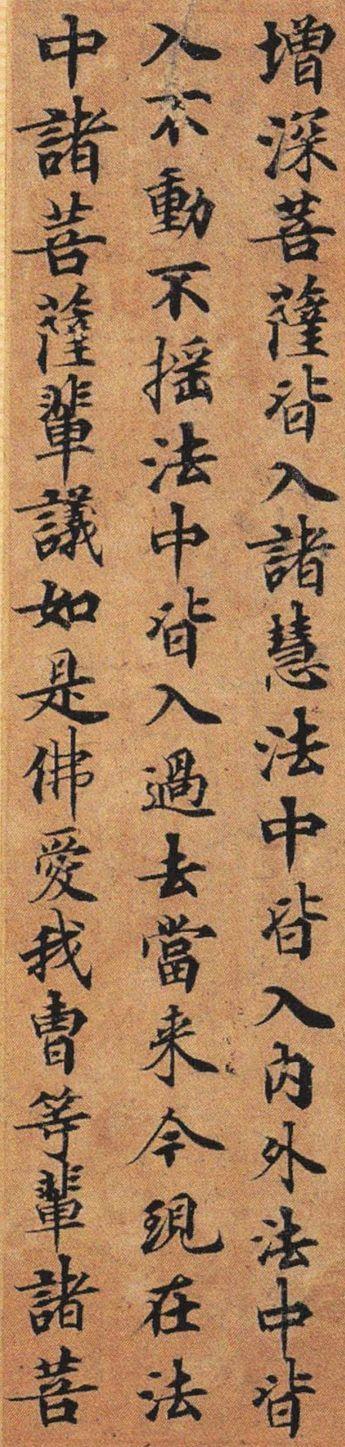 增深菩薩皆入諸慧法中皆入內外法中皆
入不動不摇法中皆入過去當来今現在法
中諸菩薩輩議如是佛愛我曹等輩諸菩